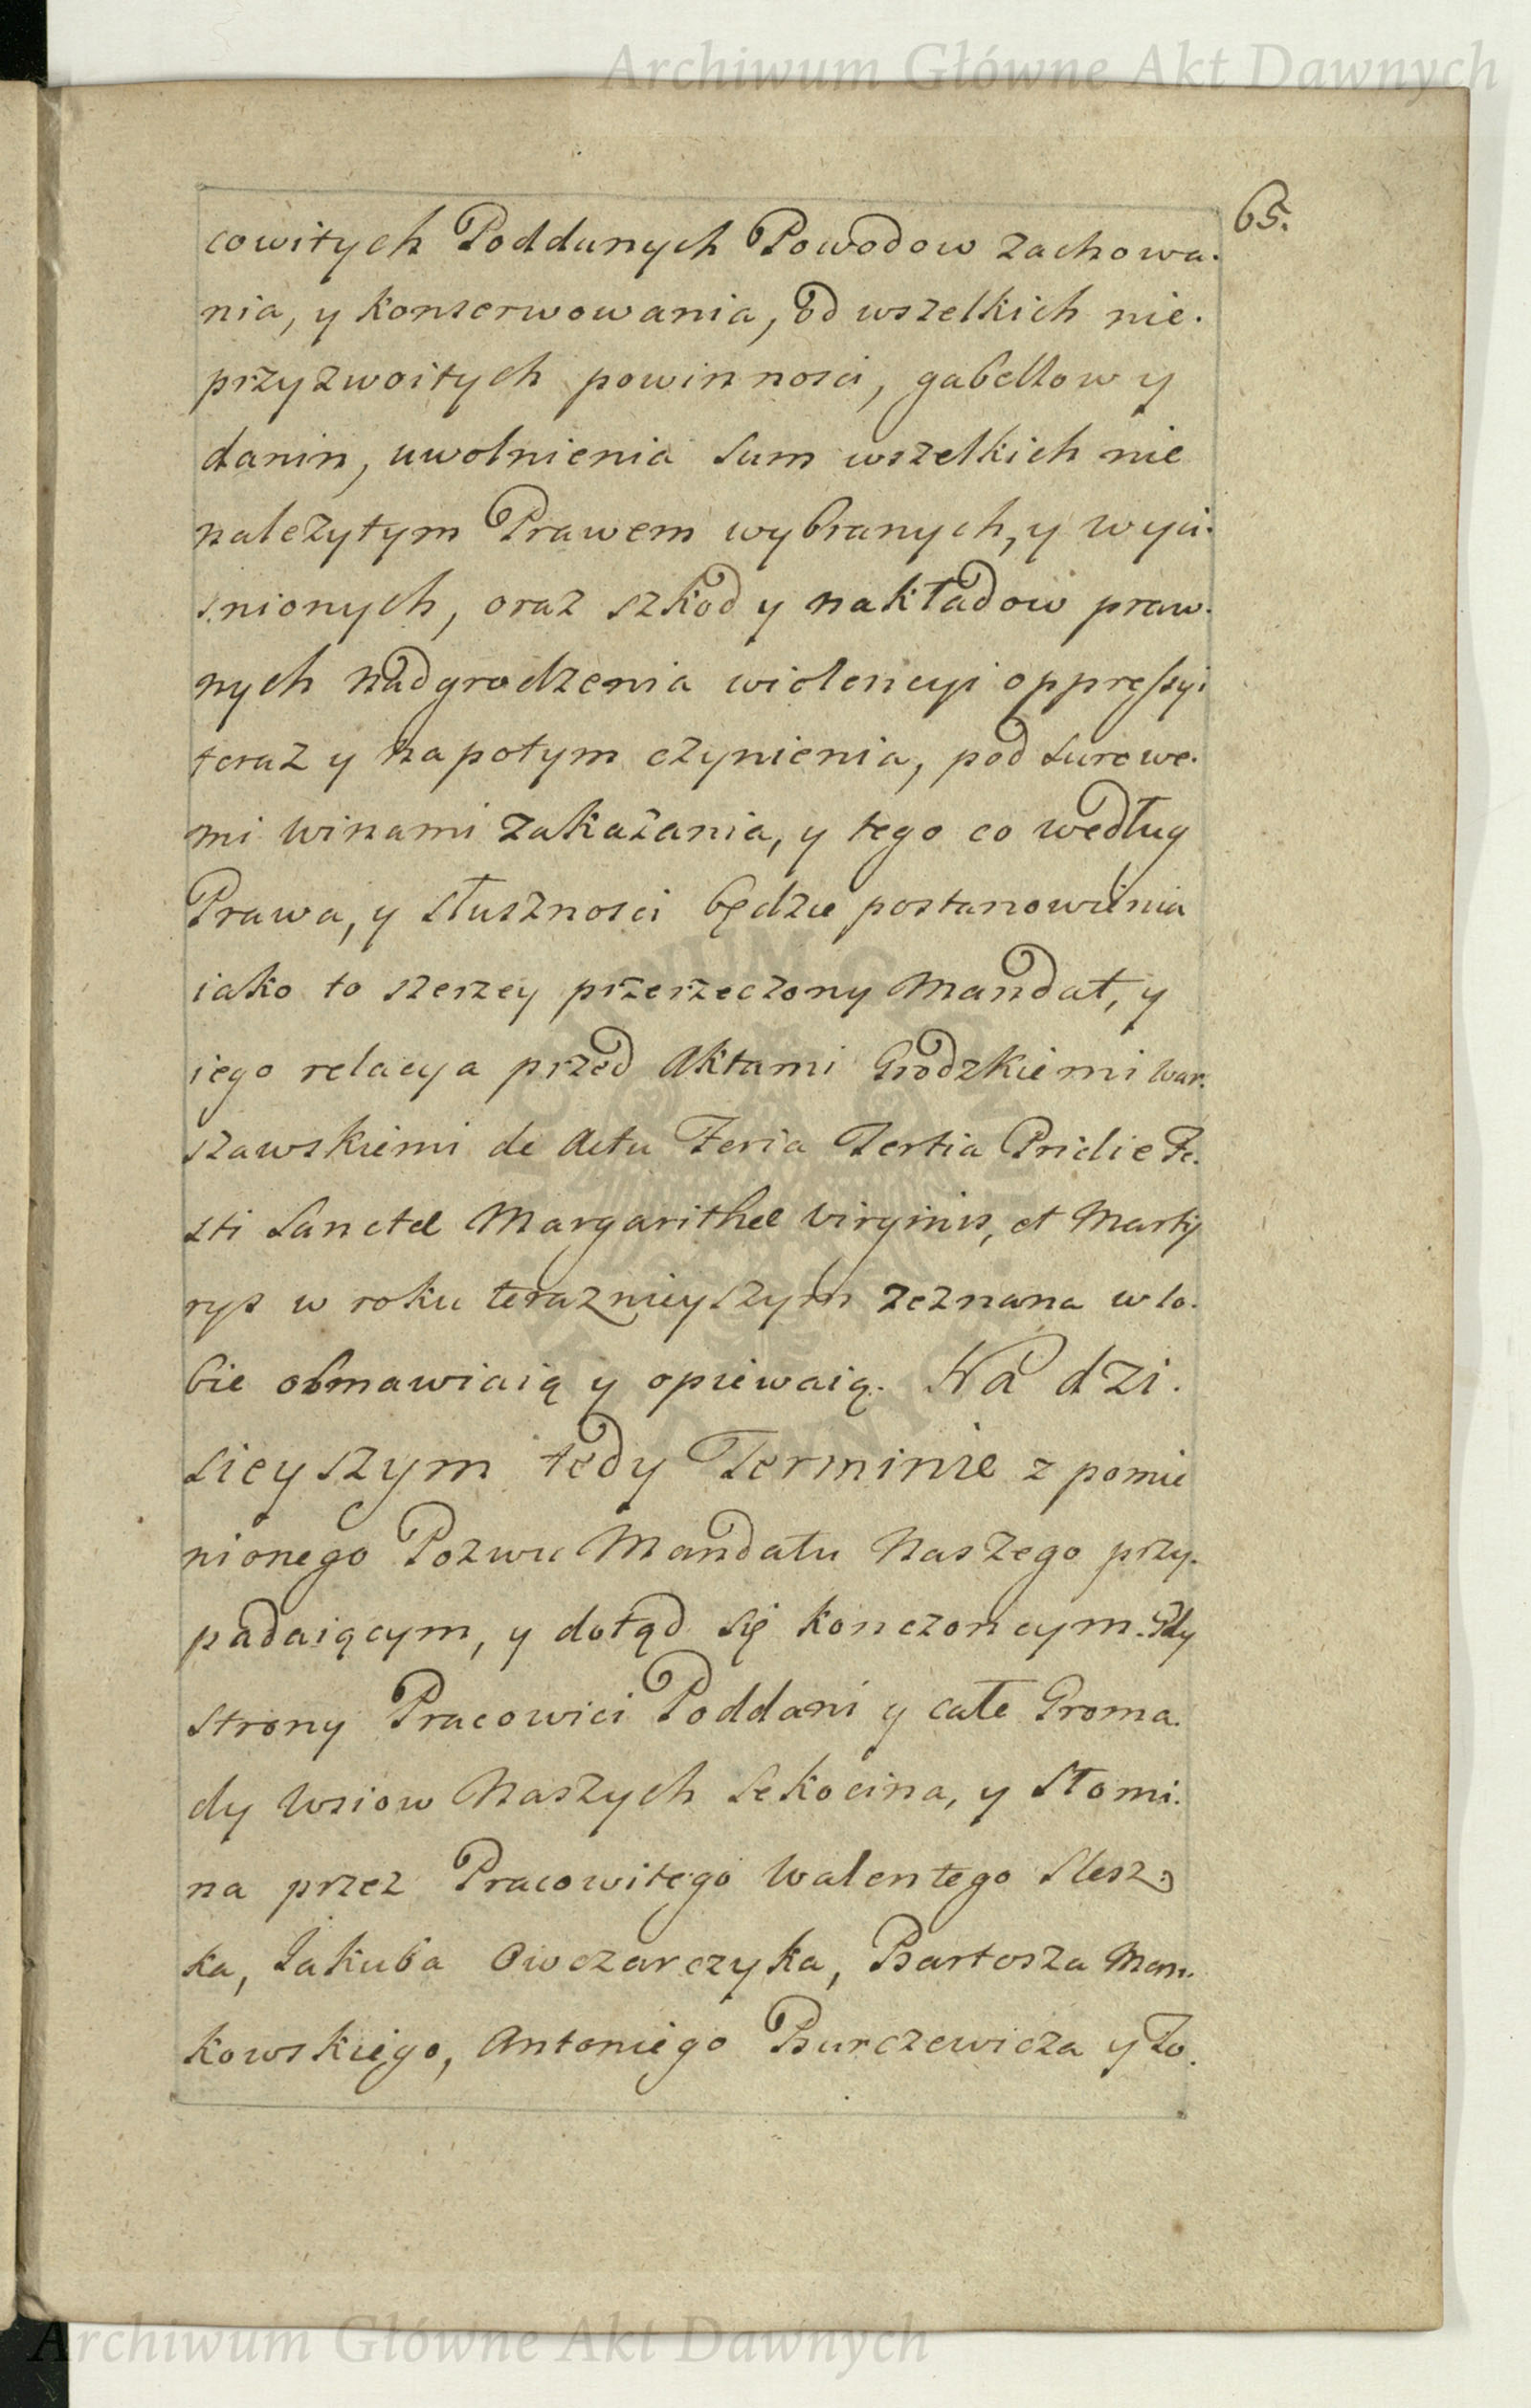 Archiwum Główne Akt Dawnych
65.
cowitych Poddanych Powodow zachowa.
nia, y konserwowania, od wszelkich nie.
przyzwoitych powinnosci, gabellow y
danin, uwolnienia sum wszelkich nie
nalezytym Prawem wybranych, y wyci.
snionych, oraz szkod y nakładow praw.
nych nadgrodzenia wiolencyi oppressyi
teraz y napotym czynienia, pod surowe.
mi winami zakazania, y tego co według
Prawa, y słusznosci będzie postanowienia
iako to szerzey przerzeczony Mandat, y
iego relacya przed Aktami Grodzkiemi War.
szawskiemi de Actu Feria Tertia Pridie Fe.
sti Sanctæ Margarithæ Virginis, et Marty
rys w roku teraznieyszym zeznana w so.
bie obmawiaią y opiewaią. Na dzi.
sieyszym tedy Terminie z pomie
nionego Pozwu Mandatu Naszego przy.
padaiącym, y dotąd się konczoncym. Gdy
strony Pracowici Poddani y całe Groma.
dy Wsiow Naszych Sekocina, y Słomi.
na przez Pracowitego Walentego Slesz.
ka, Jakuba Owczarczyka, Bartosza Man.
kowskiego, Antoniego Burczewicza y To.
Archiwum Główne Akt Dawnych